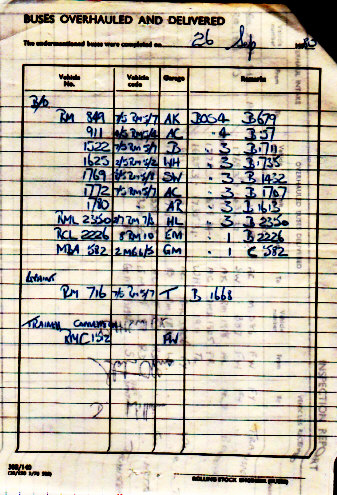 BUSES OVERHAULED AND DELIVERED
The undermentioned buses were completed on 26 Sep
Vehicle No. Vehicle code Garage Remarks
B/O
RM 849 7/5 RM5/7 AK BO04 B679
911 AC - 4 B37
1522 7/5 RM5/7 B - 3 B1711
1625 2/5 RM5/2 WH - 3 B1735
1769 SW - 3 B1432
1772 7/5 RM5/7 AC - 3 B1707
1780 " AR - 3 B1613
RML 2350 HL - 3 B2350
RCL 2226 8 RM10 EM - 1 B2226
MBA 582 GM - 1 C582
RM 716 7/5 RM5/7 T B1668
TRAINER
RMC 152
ROLLING STOCK ENGINEER (BUSES)